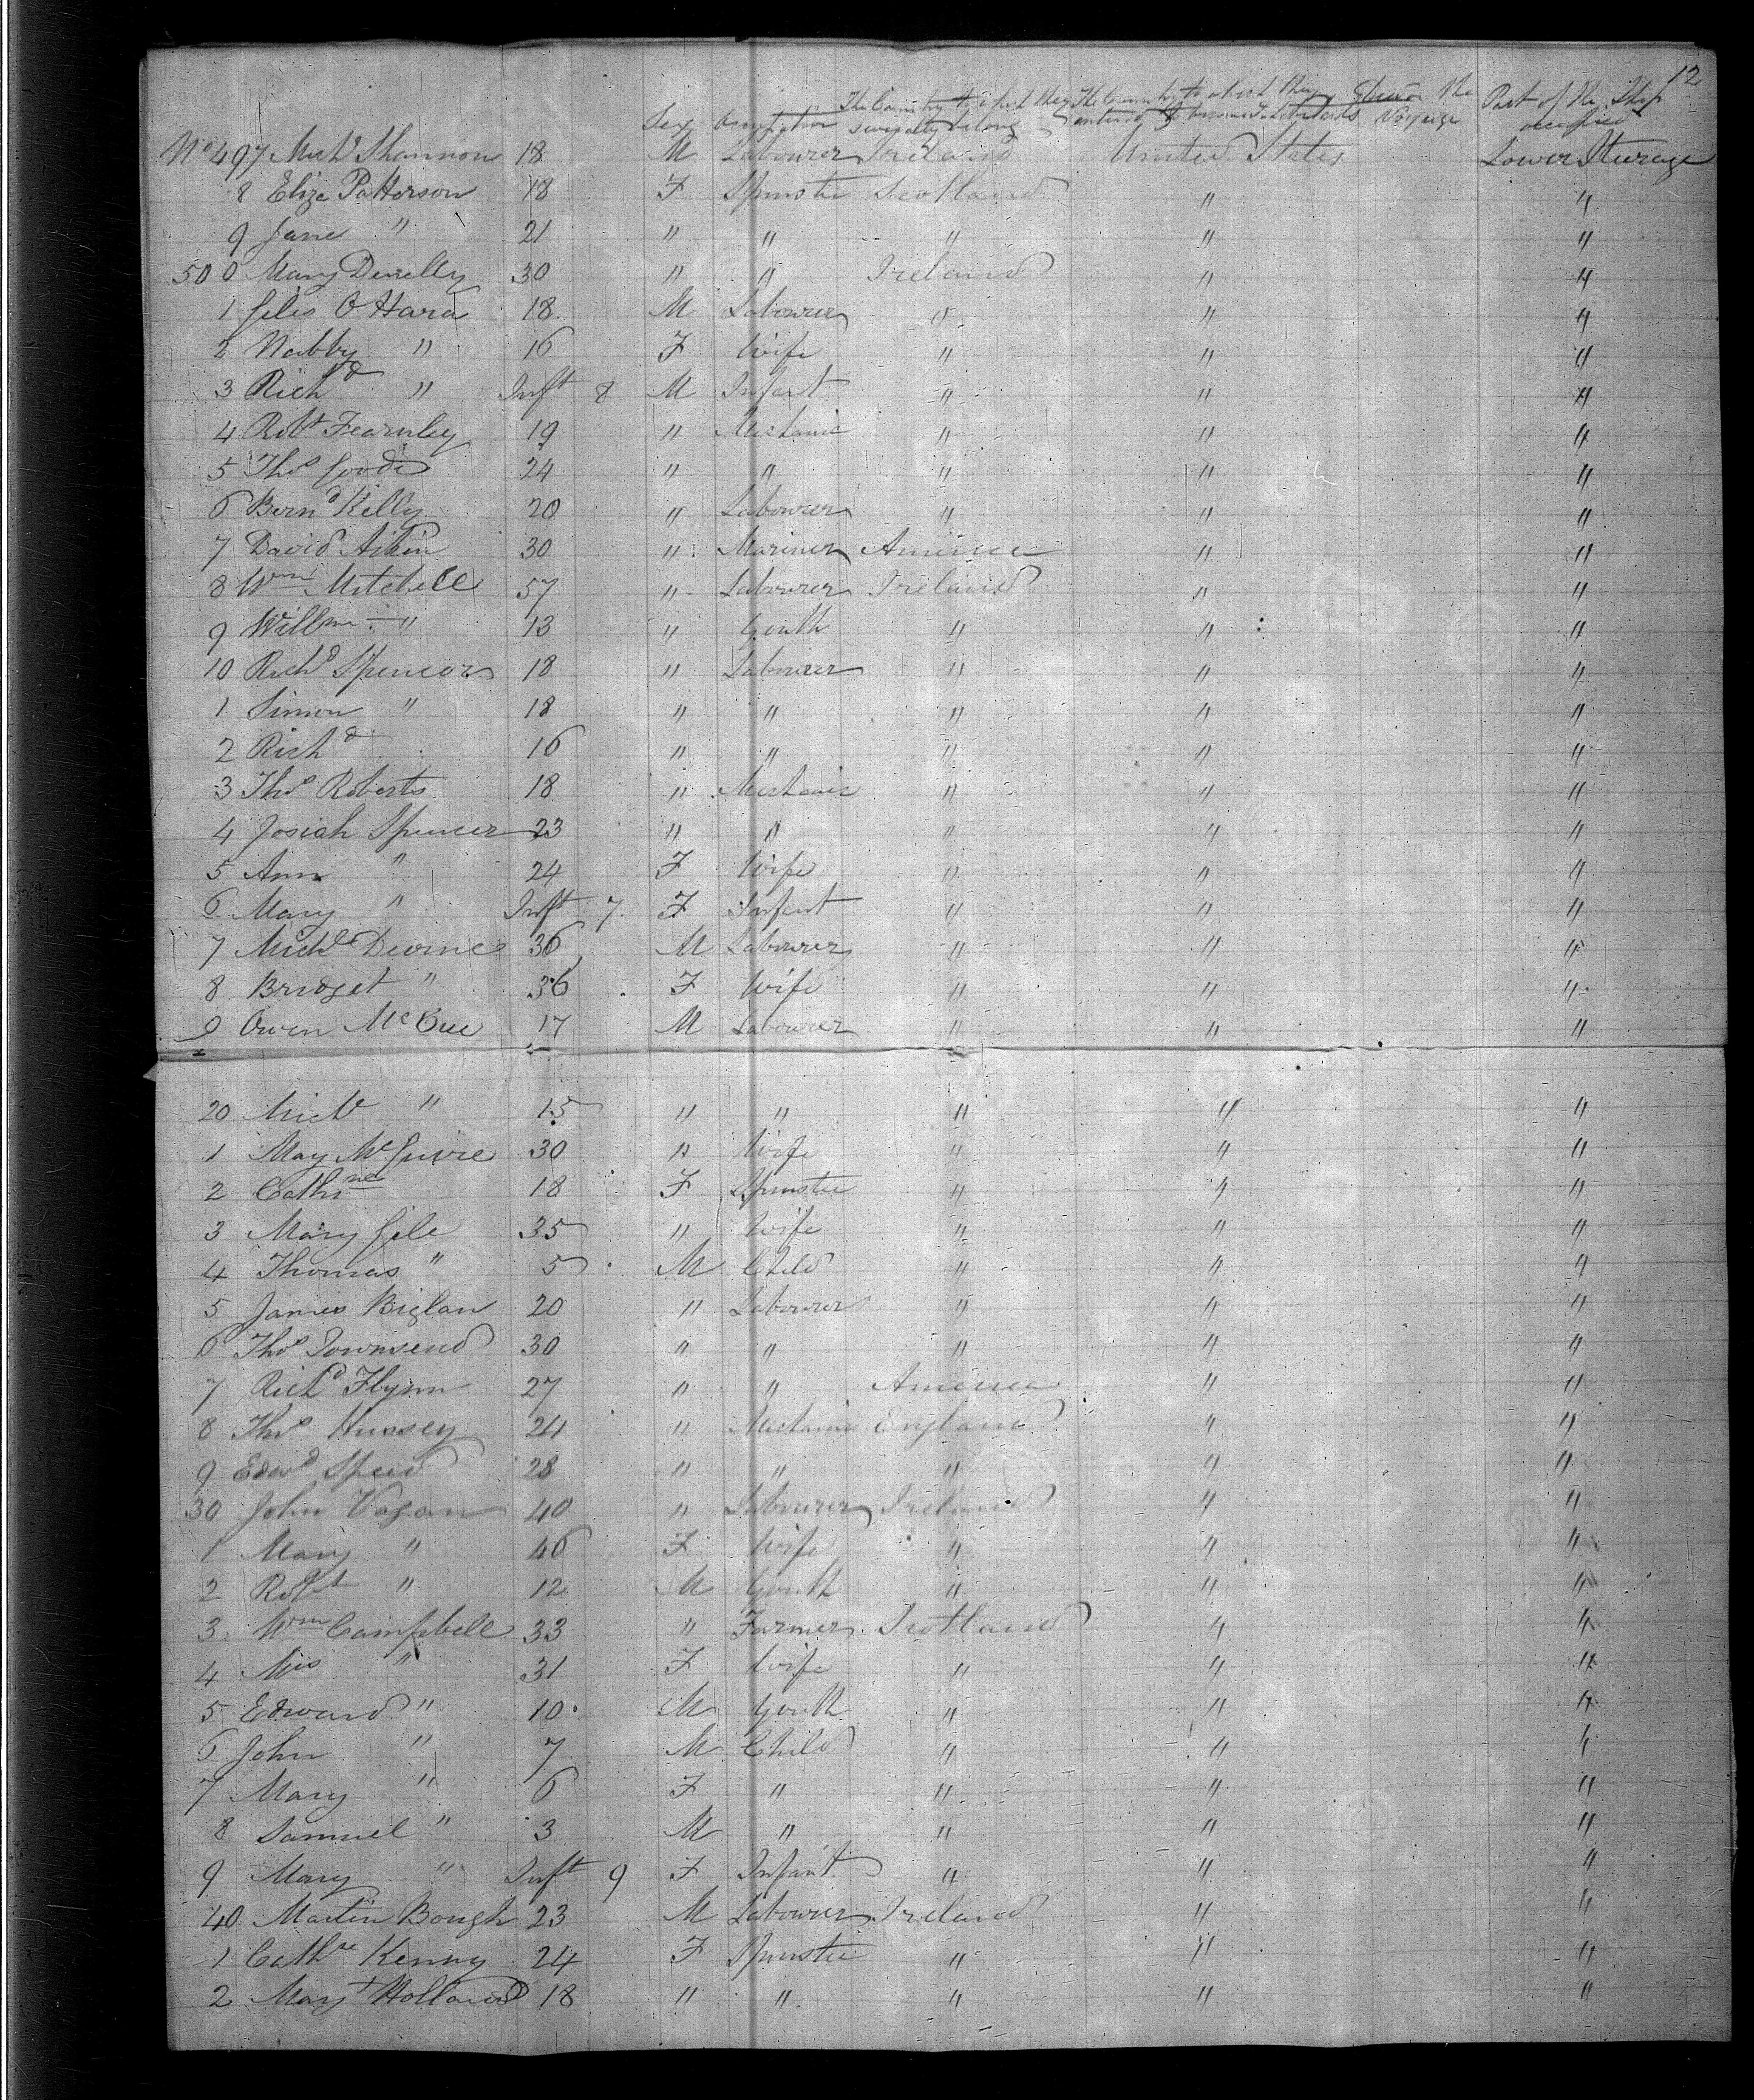 12
Sex Occupation The Country to which they severally belong The Country to which they intend to become inhabitants Died on the Voyage Part of the Ship occupied
No 497 Michl Shannon 18 M Labourer Ireland United States Lower Steerage
8 Eliza Patterson 18 F Spinster Scotland " "
9 Jane " 21 " " " " "
500 Mary Develly 30 " " Ireland " "
1 Giles O Hara 18 M Labourer " " "
2 Nabby " 16 F Wife " " "
3 Richd " Inft 8 M Infant " " "
4 Robt Fearnley 19 " Mechanic " " "
5 Thos Goode 24 " " " " "
6 Bernd Kelly 20 " Labourer " " "
7 David Aikin 30 " Mariner America " "
8 Wm Mitchell 57 " Labourer Ireland " "
9 Willm " 13 " Youth " " "
10 Richd Spencer 18 " Labourer " " "
1 Simon " 18 " " " " "
2 Richd 16 " " " " "
3 Thos Roberts 18 " Mechanic " " "
4 Josiah Spencer 23 " " " " "
5 Ann " 24 F Wife " " "
6 Mary " Inft 7 F Infant " " "
7 Michl Devine 36 M Labourer " " "
8 Bridget " 36 F Wife " " "
9 Owen McCue 17 M Labourer " " "
20 Michl " 15 " " " " "
1 May McGuire 30 " Wife " " "
2 Cathrne 18 F Spinster " " "
3 Mary Gile 35 " Wife " " "
4 Thomas " 5 M Child " " "
5 James Biglan 20 " Labourer " " "
6 Thos Townsend 30 " " " " "
7 Richd Flynn 27 " " America " "
8 Thos Hussey 24 " Mechanic England " "
9 Edwd Speed 28 " " " " "
30 John Vagan 40 " Labourer Ireland " "
1 Mary " 46 F Wife " " "
2 Robt " 12 M Youth " " "
3 Wm Campbell 33 " Farmer Scotland " "
4 Mrs " 31 F Wife " " "
5 Edward " 10 M Youth " " "
6 John " 7 M Child " " "
7 Mary " 6 F " " " "
8 Samuel " 3 M " " " "
9 Mary " Inft 9 F Infant " " "
40 Martin Bough 23 M Labourer Ireland " "
1 Cathne Kenny 24 F Spinster " " "
2 Mary Holland 18 " " " " "